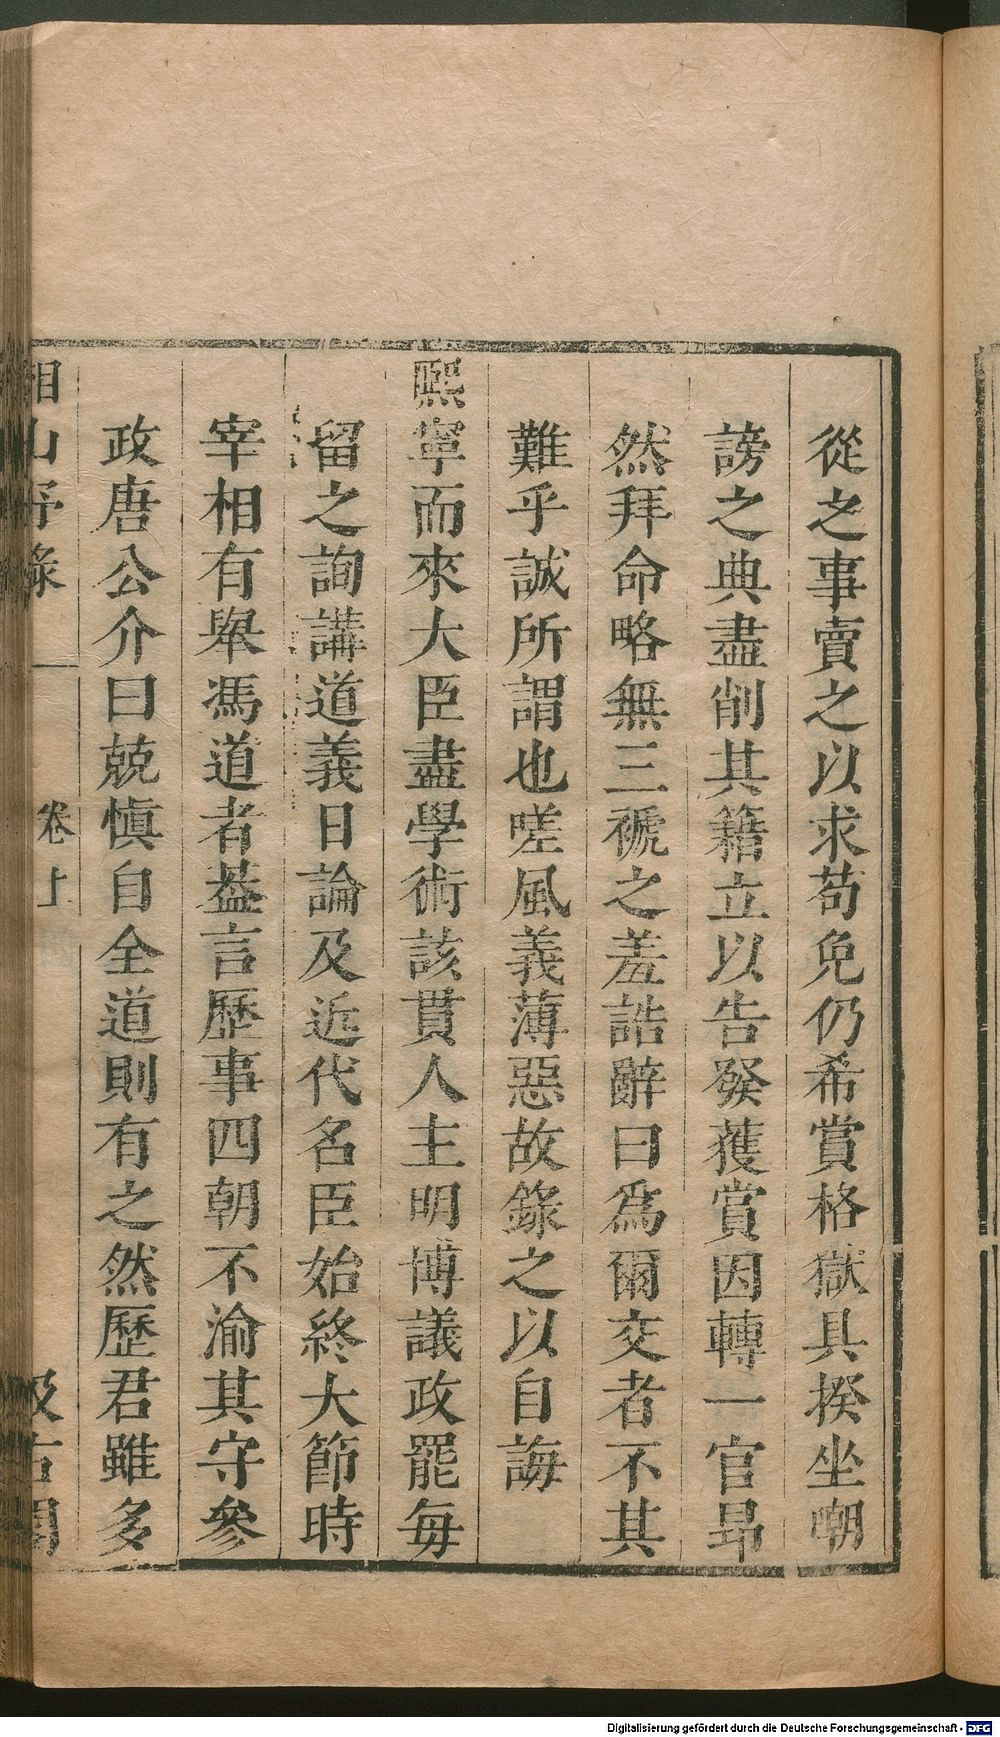 從之事賣之以求苟免仍希賞格獄具揆坐嘲
謗之典盡削其籍立以告發獲賞因轉一官昻
然拜命略無三褫之羞誥辭曰爲爾交者不其
難乎誠所謂也嗟風義薄惡故錄之以自誨
熙寧而來大臣盡學術該貫人主明博議政罷每
留之詢講道義日論及近代名臣始終大節時
宰相有舉馮道者葢言歷事四朝不渝其守參
政唐公介曰兢愼自全道則有之然歷君雖多
湘山野錄 卷上 汲古閣
Digitalisierung gefördert durch die Deutsche Forschungsgemeinschaft - DFG